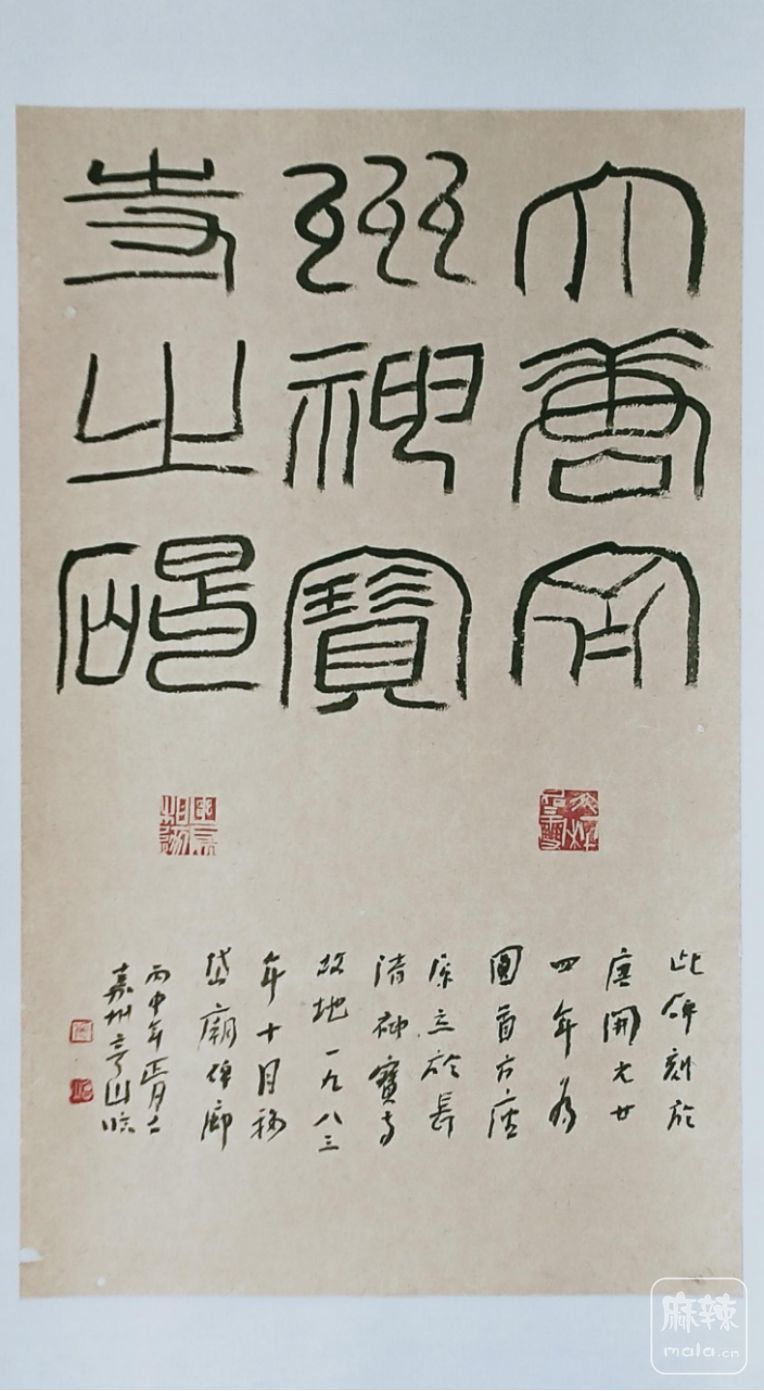 大唐齊
州神寶
寺之碣
此碑刻於
唐開元廿
四年為
圓首方座
原立於長
清神寶寺
故地一九八三
年十月移
岱廟碑廊
丙申年正月
嘉州山临
麻辣
mala.cn